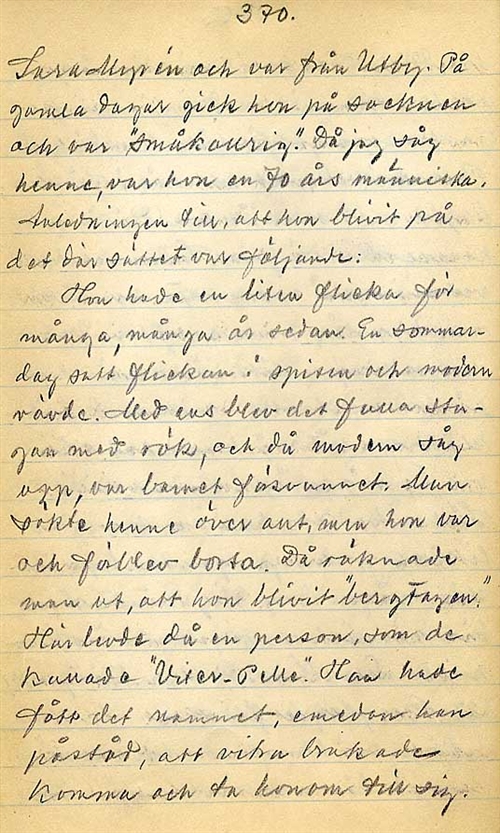 370.
Sara Myrén och var från Utby. På
gamla dagar gick hon på socknen
och var "småkourig." Då jag såg
henne, var hon en 70 års människa.
Anledningen till, att hon blivit på
det där sättet var följande:
Hon hade en liten flicka för
många, många år sedan. En sommar-
dag satt flickan i spisen och modern
vävde. Med ens blev det fulla stu-
gan med rök, och då modern såg
upp, var barnet försvunnet. Man
sökte henne över allt, men hon var
och förblev borta. Då räknade
man ut, att hon blivit "bergtagen."
Här levde då en person, som de
kallade "Viter-Pelle". Han hade
fått det namnet, emedan han
påstod, att vitra brukade
komma och ta honom till sig.